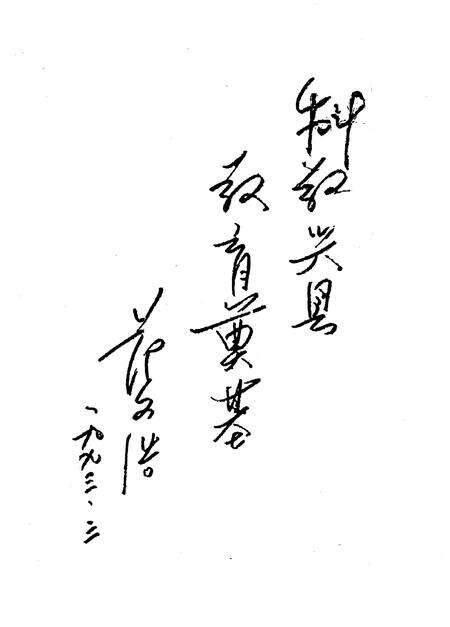 科教兴县
教育奠基
范文浩
一九九三、三